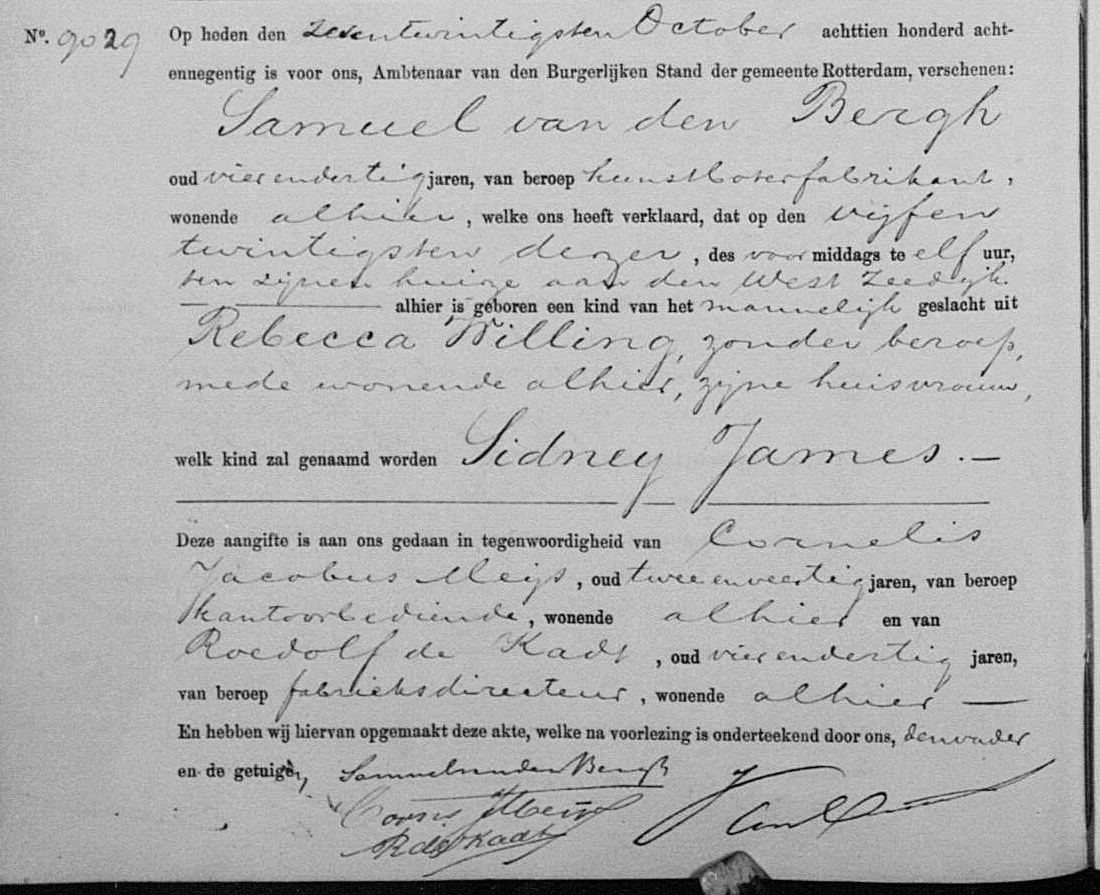 Nº. 9029 Op heden den zevenentwintigsten October achttien honderd acht-
ennegentig is voor ons, Ambtenaar van den Burgerlijken Stand der gemeente Rotterdam, verschenen:
Samuel van den Bergh
oud vierendertig jaren, van beroep kunstboterfabrikant,
wonende alhier, welke ons heeft verklaard, dat op den vijfen
twintigsten dezer, des voormiddags te elf uur,
ten zijnen huize aan den West Zeedijk
alhier is geboren een kind van het mannelijk geslacht uit
Rebecca Willing, zonder beroep,
mede wonende alhier, zijne huisvrouw,
welk kind zal genaamd worden Sidney James.—
Deze aangifte is aan ons gedaan in tegenwoordigheid van Cornelis
Jacobus Meijs, oud tweeenveertig jaren, van beroep
kantoorbediende, wonende alhier en van
Roedolf de Kadt, oud vierendertig jaren,
van beroep fabrieksdirecteur, wonende alhier —
En hebben wij hiervan opgemaakt deze akte, welke na voorlezing is onderteekend door ons, den vader
en de getuigen, Samuel van den Bergh
R de Kadt